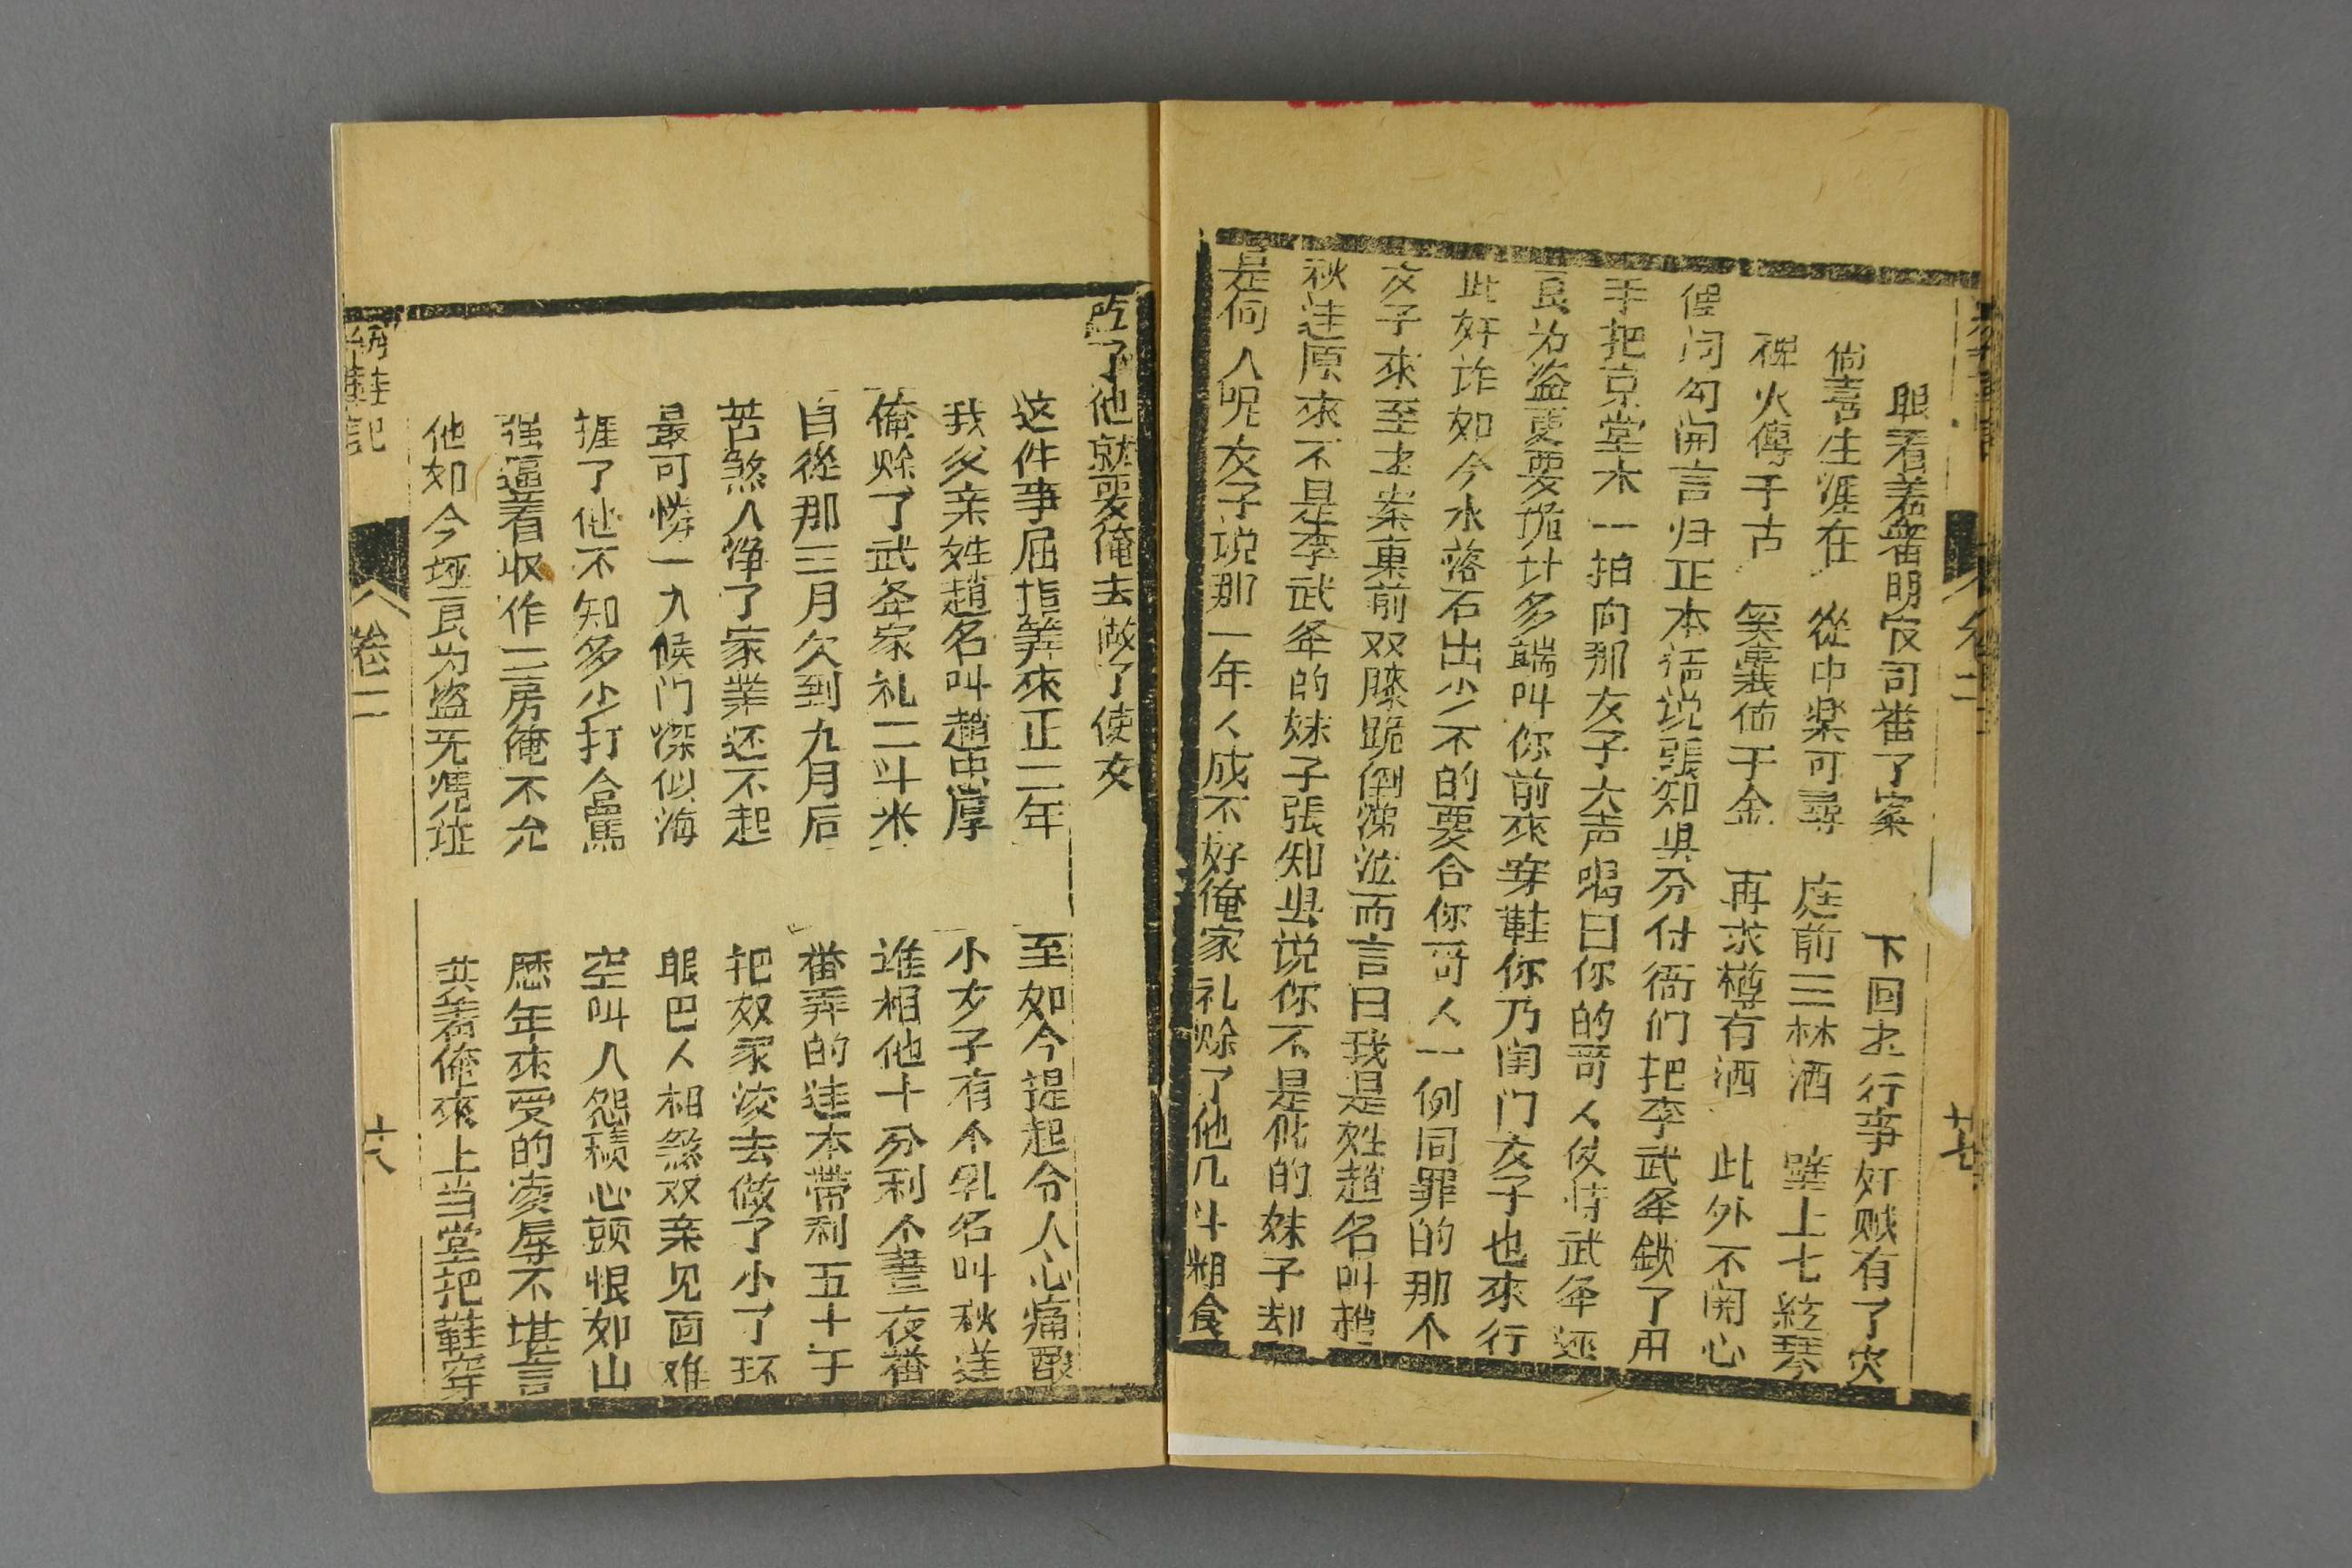 眼看着審明官司審了案 下回書行事奸贼有了灾
尚喜生涯在 從中楽可尋 庭前三杯酒 壁上七絃琴
稗火傳千古 笑裏値千金 再求樽有酒 此外不関心
俚词勾開言归正本话说張知县分付衙们把李武举鎖了用
手把京堂木一拍向那女子大声喝曰你的哥人使特武举迋
良为盗更要诡计多端叫你前來穿鞋你乃闺门女子也來行
此奸诈如今水落石出少不的要合你哥人一例同罪的那个
女子來至书案東前双膝跪倒涕泣而言曰我是姓趙名叫趙
秋莲原來不是李武举的妹子張知县说你不是他的妹子却
是何人呢女子说那一年人成不好俺家礼赊了他几斗粗食
乾了他就要俺去做了使女
这件事屈指筭來正二年 至如今提起令人心痛酸
我父亲姓趙名叫趙忠厚 小女子有个乳名叫秋莲
俺赊了武举家礼二斗米 谁相他十分利个晝夜番
自從那三月欠到九月后 番弄的连本带利五十千
苦煞人净了家業还不起 把奴家凌去做了小了环
最可憐一入候门深似海 眼巴人相煞双亲见面难
捱了他不知多少打合罵 空叫人怨積心頭恨如山
强逼着収作二房俺不允 歷年來受的凌辱不堪言
他如今坯良为盗无凴证 哄着俺來上当堂把鞋穿
卷二
廿八